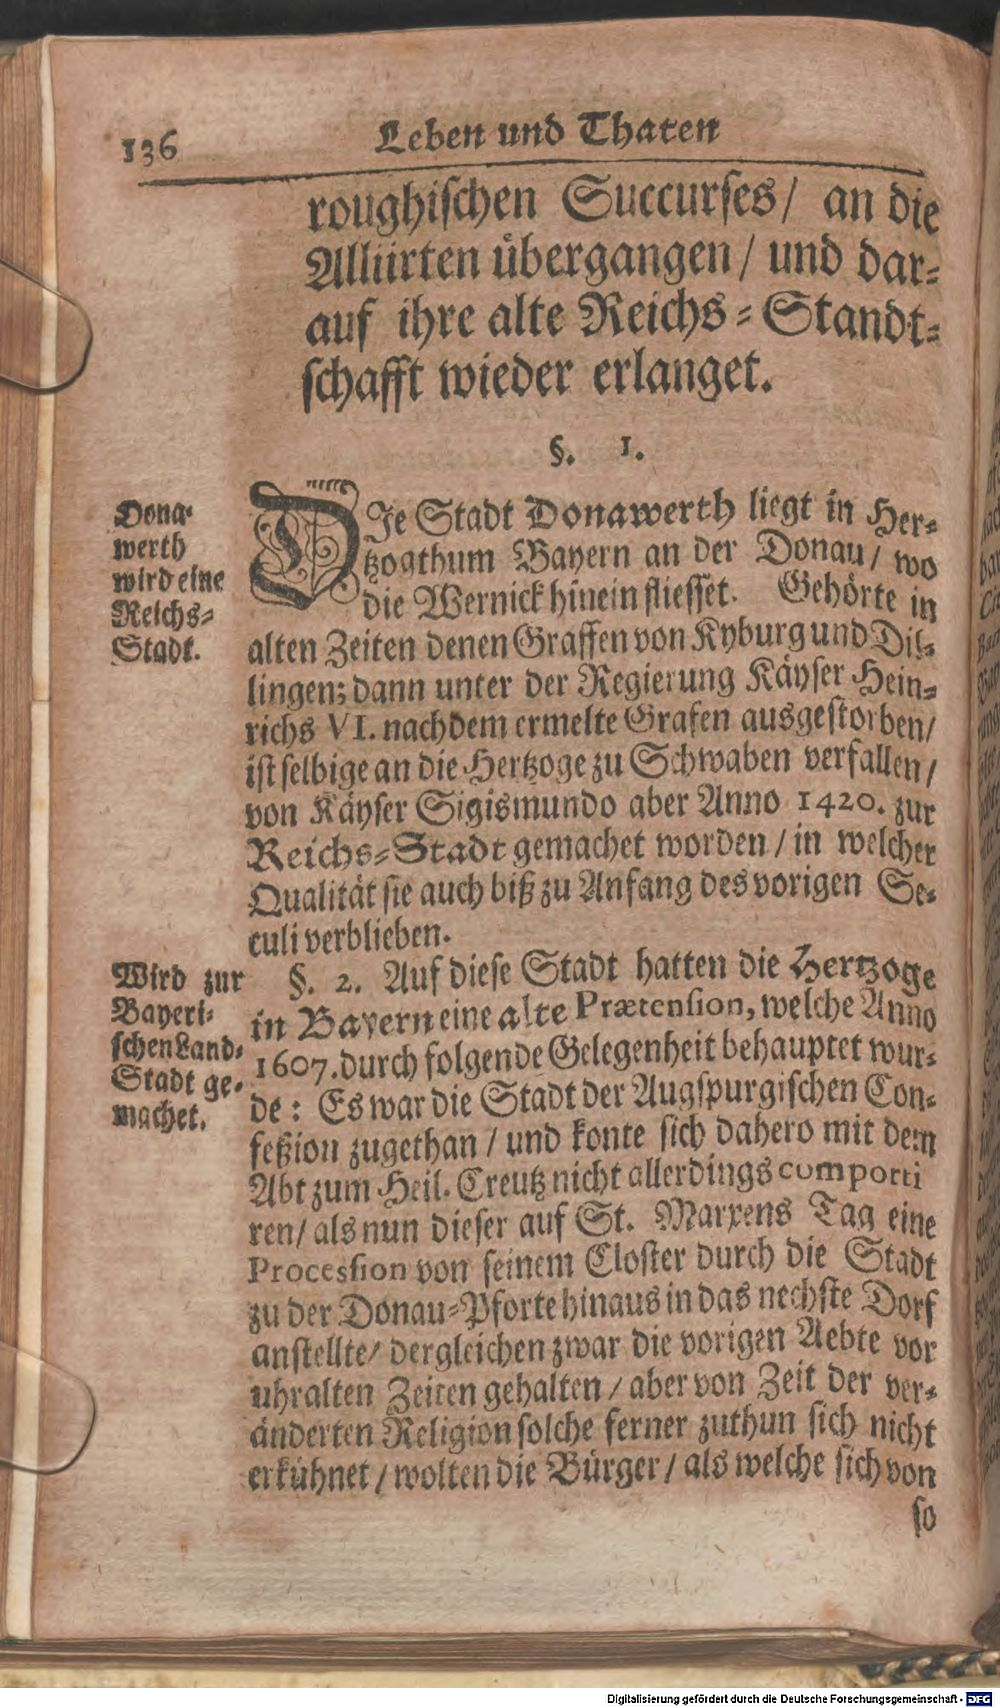 136 Leben und Thaten
roughischen Succurses/ an die
Alliirten übergangen/ und dar-
auf ihre alte Reichs-Standt-
schafft wieder erlanget.
§. 1.
Dona-
werth
wird eine
Reichs-
Stadt.
DJe Stadt Donawerth liegt in Her-
tzogthum Bayern an der Donau/ wo
die Wernick hinein fliesset. Gehörte in
alten Zeiten denen Graffen von Kyburg und Dil-
lingen; dann unter der Regierung Käyser Hein-
richs VI. nachdem ermelte Grafen ausgestorben/
ist selbige an die Hertzoge zu Schwaben verfallen/
von Käyser Sigismundo aber Anno 1420. zur
Reichs-Stadt gemachet worden/ in welcher
Qualität sie auch biß zu Anfang des vorigen Se-
culi verblieben.
Wird zur
Bayeri-
schen Land-
Stadt ge-
machet.
§. 2. Auf diese Stadt hatten die Hertzoge
in Bayern eine alte Prætension, welche Anno
1607. durch folgende Gelegenheit behauptet wur-
de: Es war die Stadt der Augspurgischen Con-
feßion zugethan/ und konte sich dahero mit dem
Abt zum Heil. Creutz nicht allerdings comporti
ren/ als nun dieser auf St. Marxens Tag eine
Procession von seinem Closter durch die Stadt
zu der Donau-Pforte hinaus in das nechste Dorf
anstellte/ dergleichen zwar die vorigen Aebte vor
uhralten Zeiten gehalten/ aber von Zeit der ver-
änderten Religion solche ferner zuthun sich nicht
erkühnet/ wolten die Bürger/ als welche sich von
so
Digitalisierung gefördert durch die Deutsche Forschungsgemeinschaft - DFG